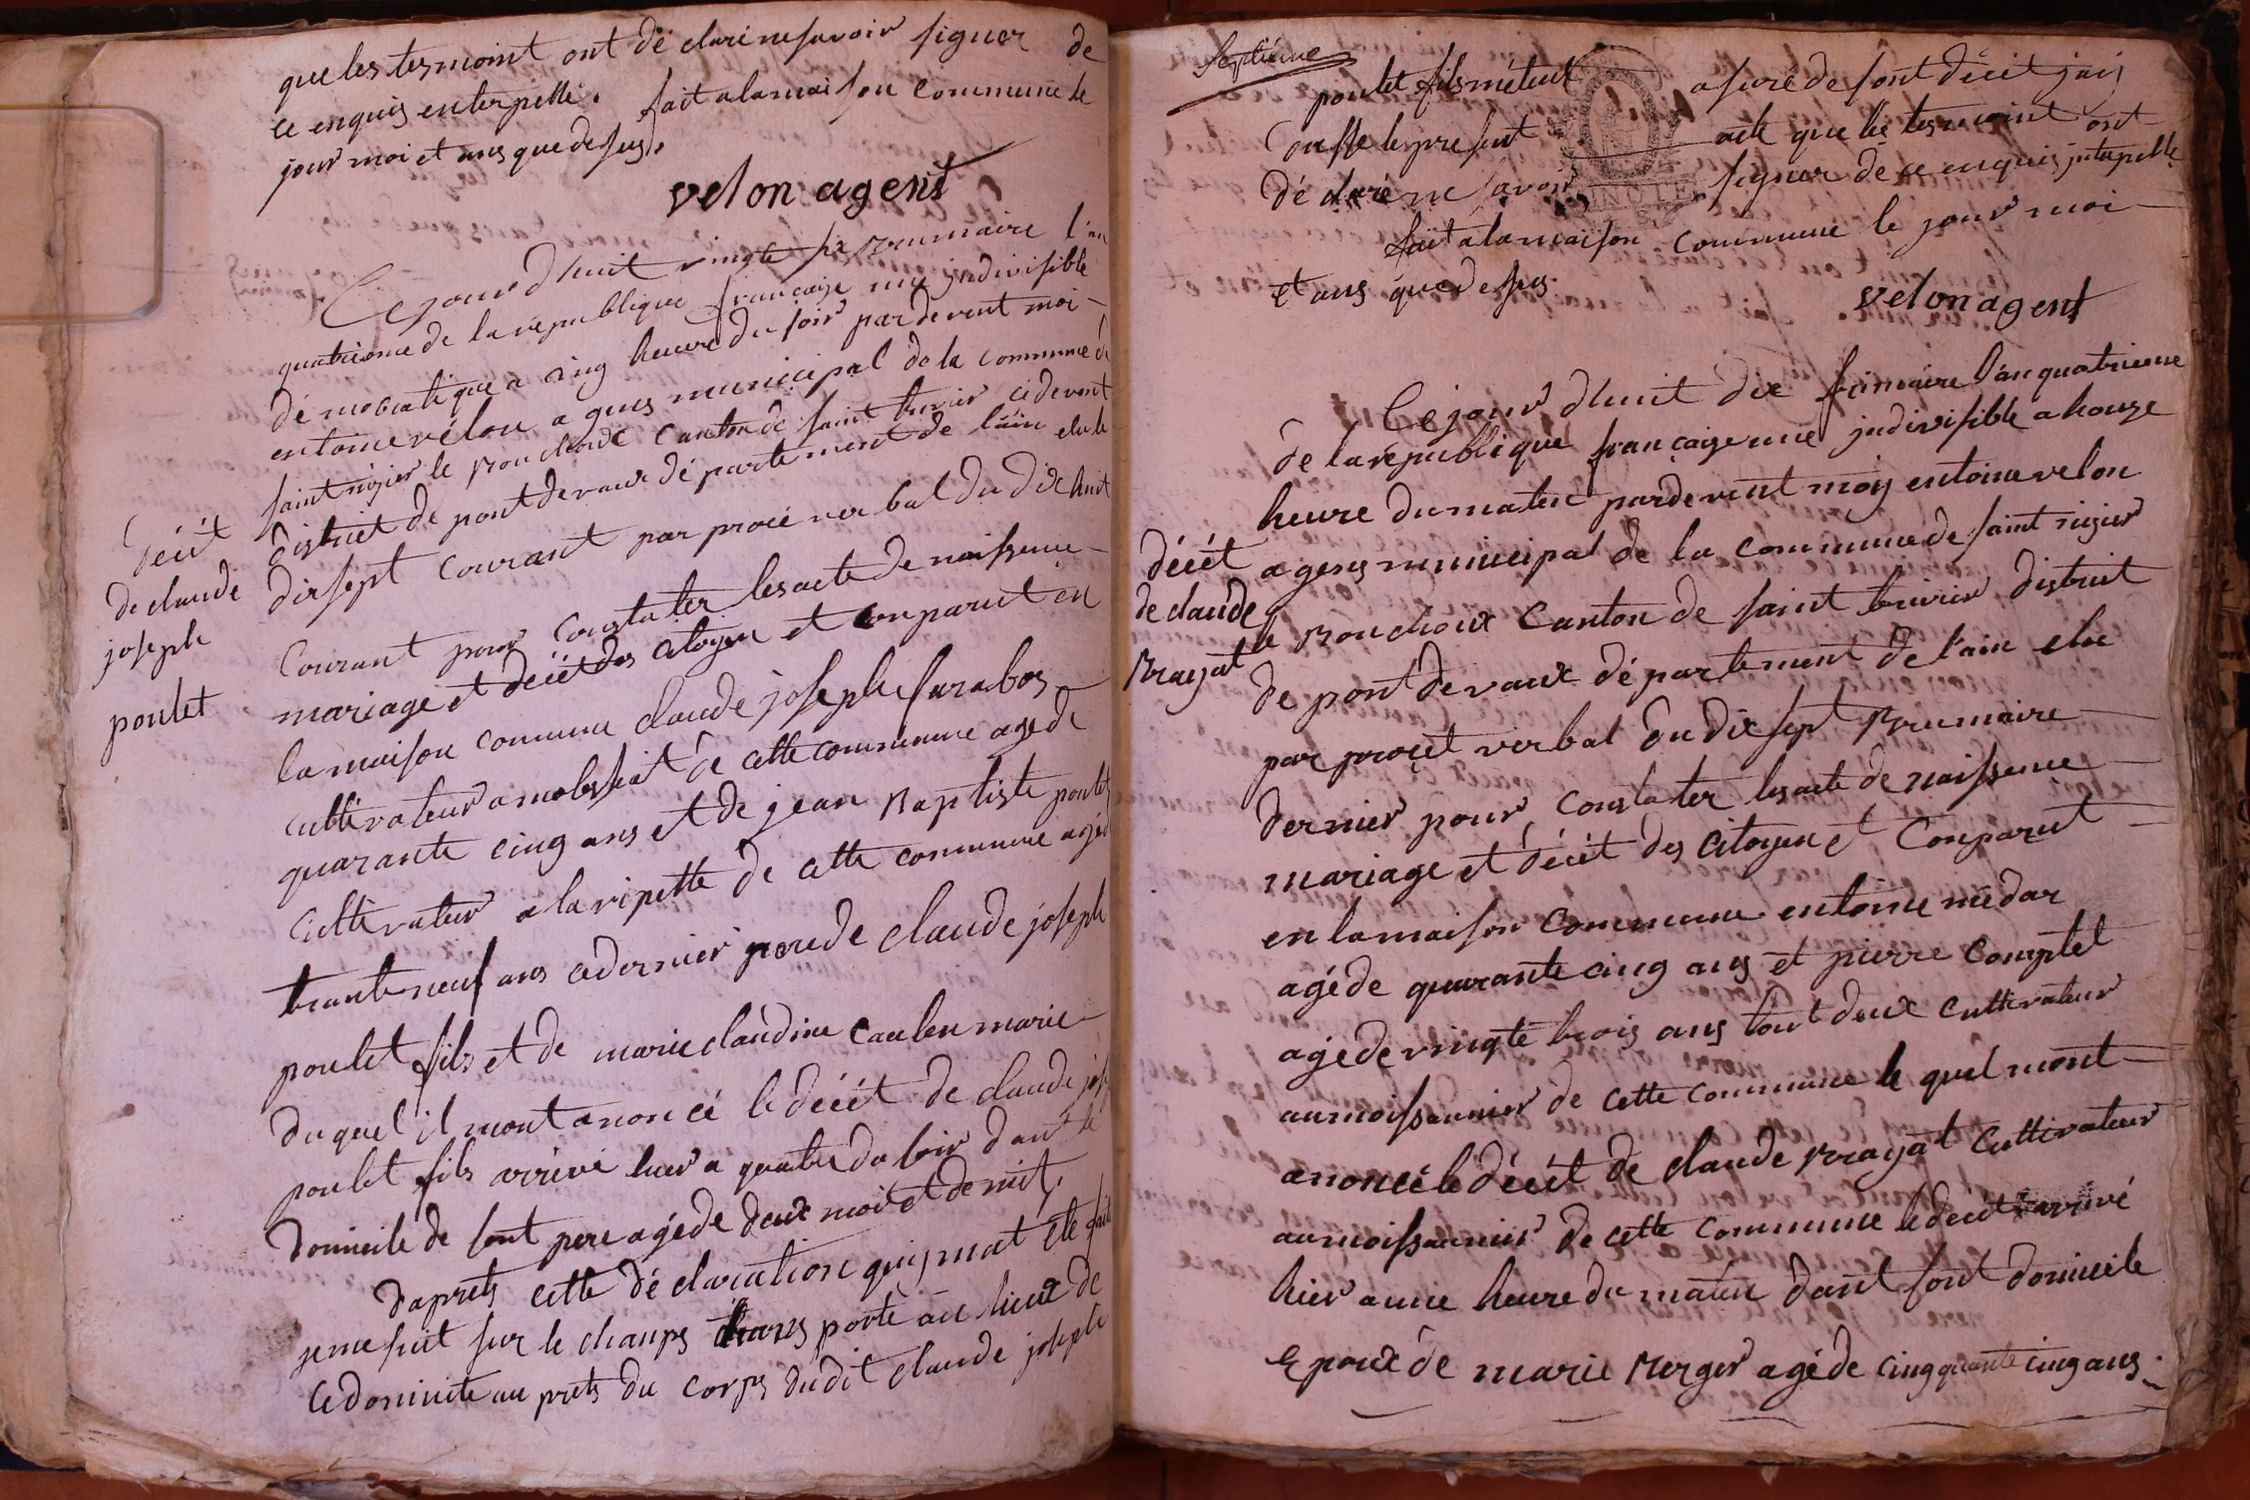 que les tesmoint ont dé claré ne savoir signer de
ce enquis enterpellé. fait a la maison commune le
jour moi et ans que desus.
velon agent
Ce jour d'huit vingte six Brumaire l'an
quatrieme de la république française une jndivisible
dé mocratique a cinq heure du soir par devent moi
entoine vélon agens municipal de la commune de
saint nizier le Bouchoux canton de saint trivier cidevent
district de pont devaux dé partement de l'ain elu le
dix sept courant par procé verbal du dix huit
Décét
de claude
joseph
poulet
Courant pour constater les acte de naissence
mariage et décét des citoyen et conparut en
la maison comune claude joseph surabos
cultivateur a mobessiat de cette commune agé de
quarante cinq ans et de jean Baptiste poulet
cultivateur a la ripette de cette commune agé de
trante neuf ans ce dernier pere de claude joseph
poulet fils et de marie claudine marie
du quel il mont anoncé le décét de claude jos
poulet fils arrivé hier a quatre du soir dant le
domicile de sont pere agé de deux moi et demit.
daprets cette dé claration qui mat été fait
je me suit sur le champs trans porté au lieux de
ce domicile au prets du corps dudit claude joseph
Septieme
poulet fils métent asuré de sont décét jaij
dressé le présent acte que les tesmoint ont
dé claré ne savoir signer de ce enquis jnterpellé
fait a la maison commune le jour moi
et ans que desus.
velon agent
Ce jour d'huit dix frimaire l'an quatrieme
de la république françaize une jndivisible a honze
heure du maten pardevent moy entoine velon
décét
de claude
Brayat
agens municipal de la commune de saint nizier
le Bouchoux canton de saint trivier district
de pont devaux dé partement de l'ain elu
par procet verbal du dix sept Brumaire
dernier pour constater les acte de naissence
mariage et décét des citoyen et conparut
en la maison commune entoine médar
agé de quarante cinq ans et pierre comptet
agé de vingte trois ans tout deux cultivateur
au moissonnier de cette commune le quel mont
anoncé le décét de claude Brayat cultivateur
au moissonnier de cette commune le décét arrivé
hier a une heure du maten dant sont domicile
epoux de marie Berger agé de cinqquante cinq ans.